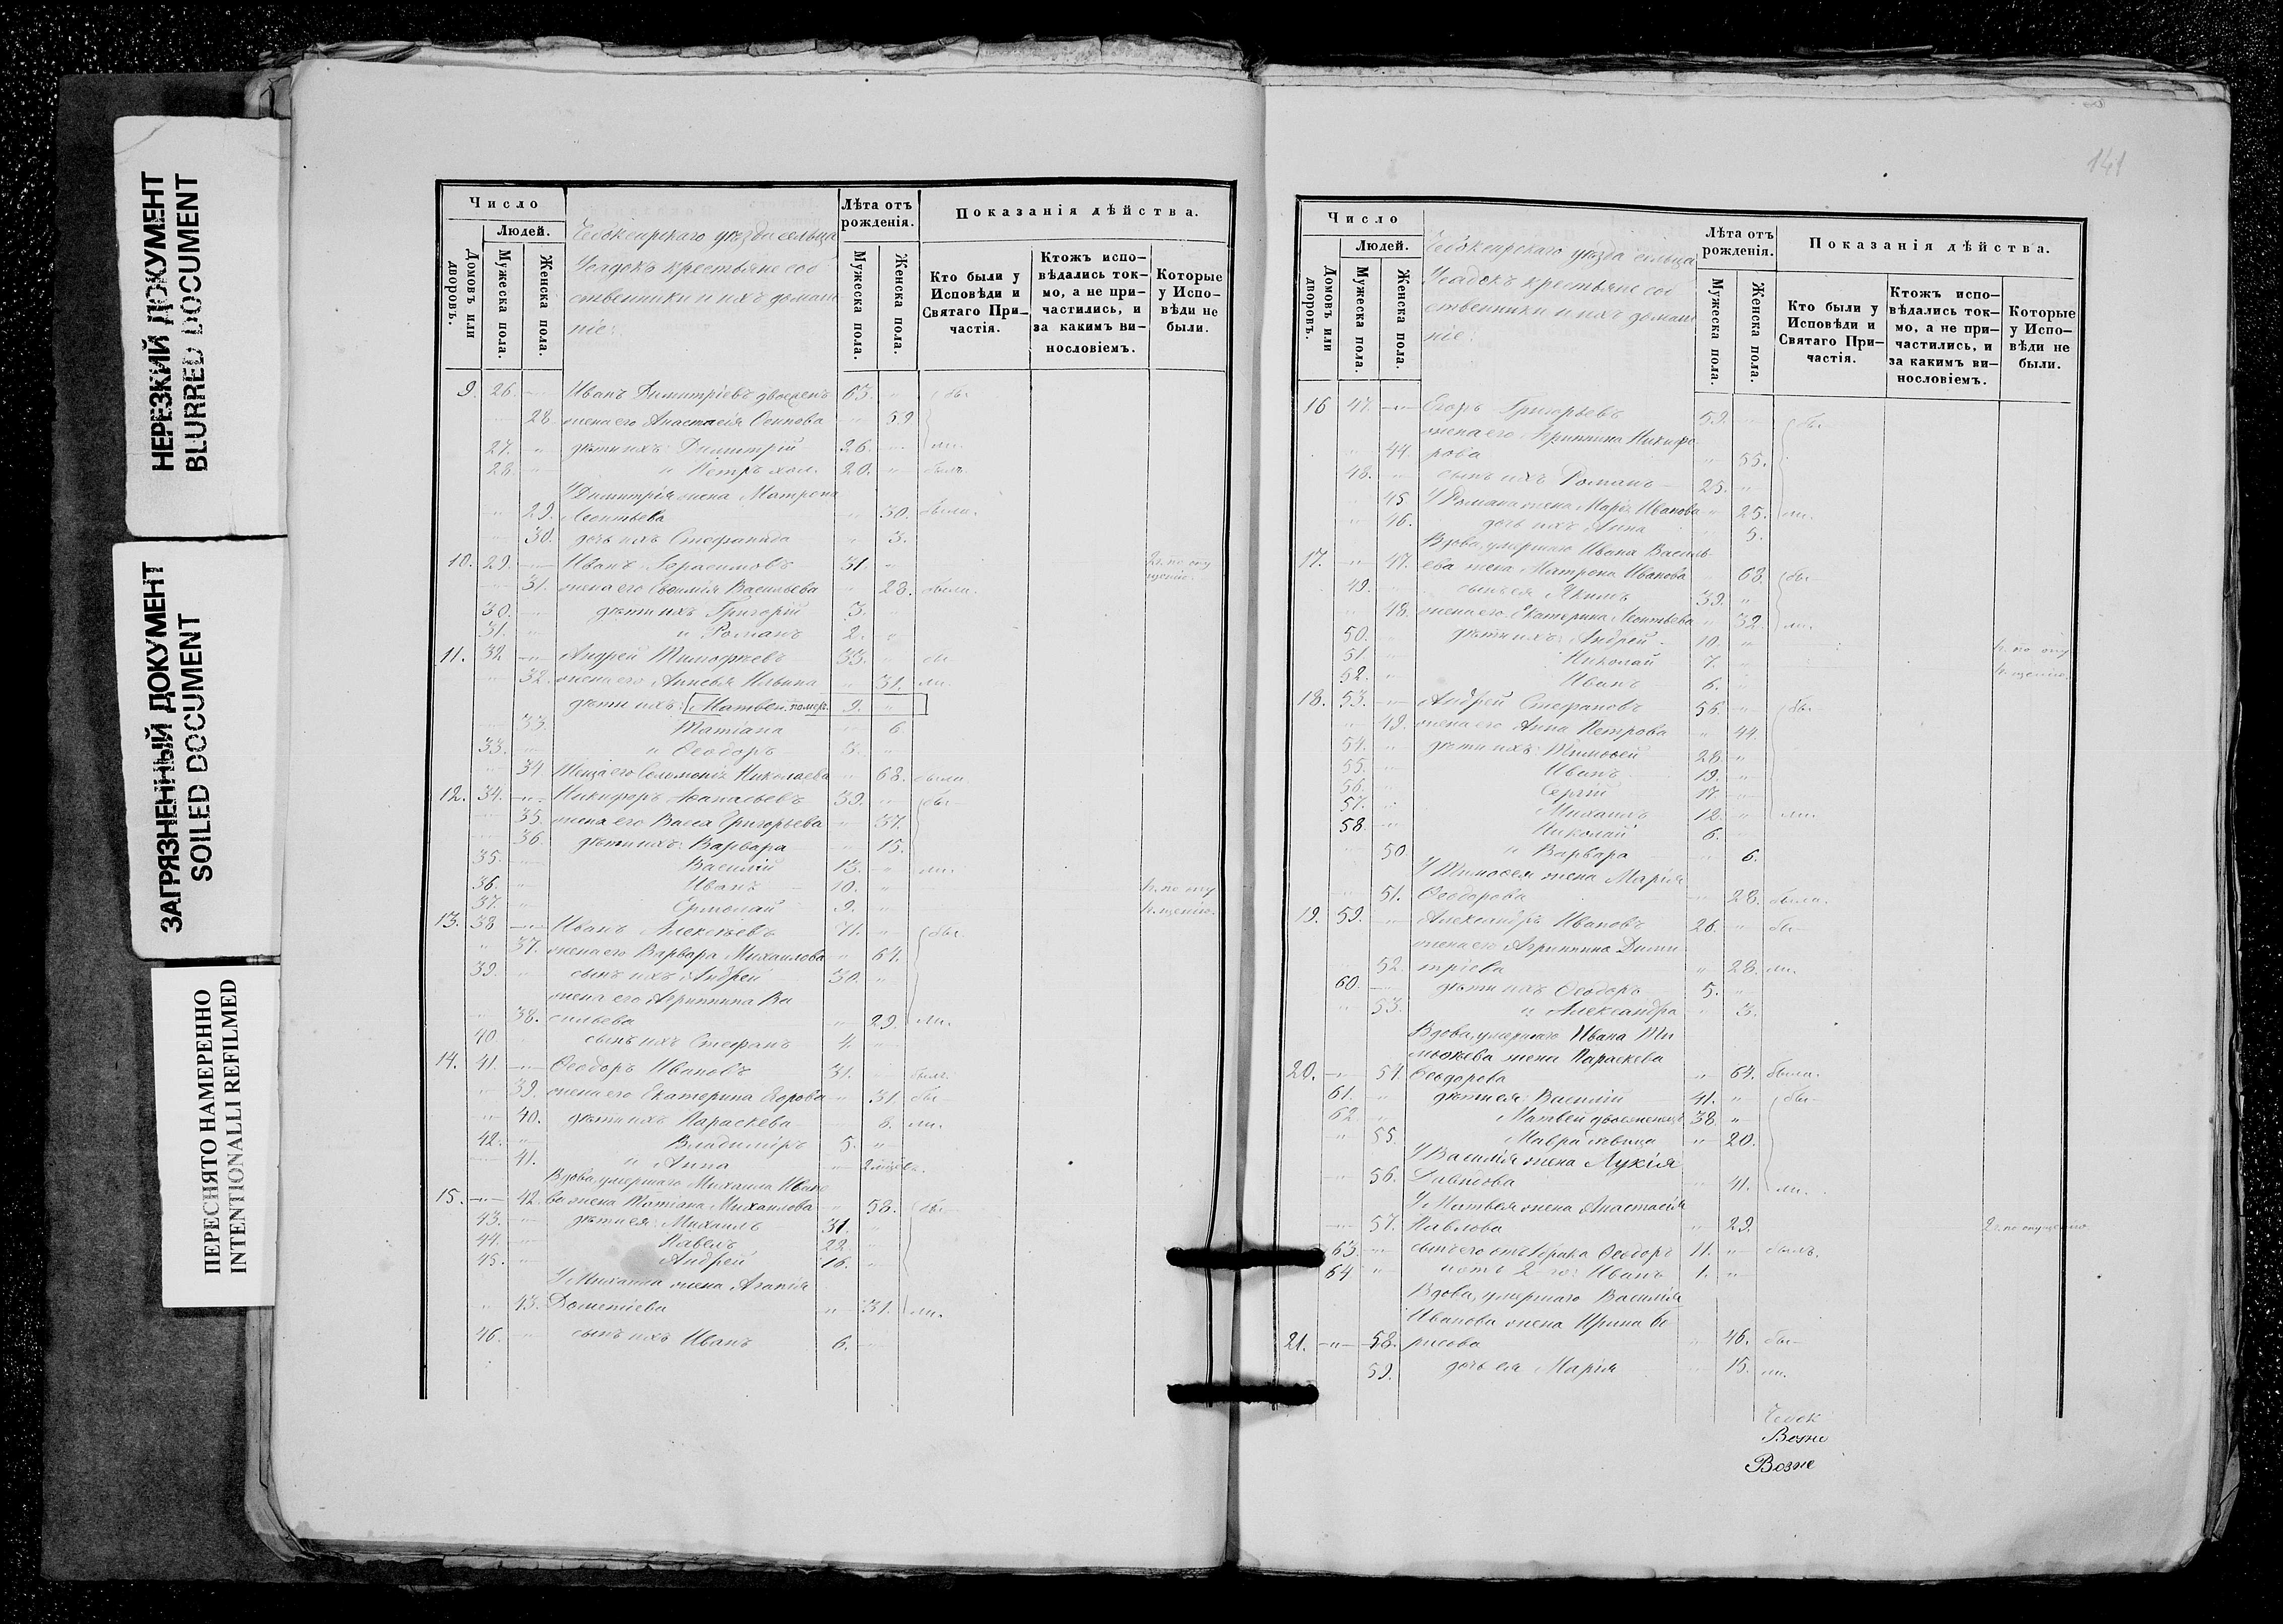 НЕРЕЗКИЙ ДОКУМЕНТ
BLURRED DOCUMENT
ЗАГРЯЗНЕННЫЙ ДОКУМЕНТ
SOILED DOCUMENT
ПЕРЕСНЯТО НАМЕРЕННО
INTENTIONALLI REFILMED
Число
Людей.
Домовъ или дворовъ.
Мужеска пола.
Женска пола.
Чебоксарскаго уѣзда сельца
Усадокъ крестьяне соб
ственники и ихъ домаш
ніе:
Лѣта отъ рожденія.
Мужеска пола.
Женска пола.
Показанія дѣйства.
Кто были у Исповѣди и Святаго При—частія.
Ктожъ испо—вѣдались ток—мо, а не при—частились, и за какимъ ви—нословіемъ.
Которые у Испо—вѣди не были.
9. 26. Иванъ Димитріевъ двоеженъ 63. бы-
28 жена его Анастасія Осипова 59
27. дѣти ихъ: Димитрій 26. ли.
28. и Петръ хол. 20. былъ
У Димитрія жена Матрона
29. Леонтьева 30. была.
30. дочь ихъ Стефанида 3.
10. 29. Иванъ Герасимовъ 31. 2 г. по опу
щенію.
31. жена его Евфимія Васильева 28. была.
30. дѣти ихъ Григорій 3.
31. и Романъ 2.
11. 32 Андрей Тимофѣевъ 33. бы-
32. жена его Ильина 31. ли.
дѣти ихъ: Матвей помер. 9.
33. Татіана 6.
33. и Ѳеодоръ 3.
34 Теща его Соломонія Николаева 68. была.
12. 34. Никифоръ Аѳанасьевъ 39. бы-
35. жена его Васса Григорьева 37.
36. дѣти ихъ: Варвара 15.
35. Василій 13. ли.
36. Иванъ 10. н. по опу
37. Ермолай 9. н. щенію.
13. 38 Иванъ Алексѣевъ 71. бы-
37. жена его Варвара Михаилова 64.
39. сынъ ихъ Андрей 30.
жена его Агриппина Ва
38. сильева 29. ли.
40. сынъ ихъ Стефанъ 4.
14. 41. Ѳеодоръ Ивановъ 31. былъ.
39. жена его Екатерина Егорова 31 бы-
40. дѣти ихъ Параскева 8. ли.
42. Владиміръ 5.
41. и Анна 2 мѣсяц.
Вдова, умершаго Михаила Ивано
15. 42. ва жена Татіана Михаилова 58. бы-
43. дѣти ея: Михаилъ 31.
44. Павелъ 22.
45. Андрей 16.
У Михаила жена Агапія
43. Дометіева 31. ли.
46. сынъ ихъ Иванъ 6.
141
Число
Людей.
Домовъ или дворовъ.
Мужеска пола.
Женска пола.
Чебоксарскаго уѣзда сельца
Усадокъ крестьяне соб
ственники и ихъ домаш
ніе:
Лѣта отъ рожденія.
Мужеска пола.
Женска пола.
Показанія дѣйства.
Кто были у Исповѣди и Святаго При—частія.
Ктожъ испо—вѣдались ток—мо, а не при—частились, и за какимъ ви—нословіемъ.
Которые у Испо—вѣди не были.
16 47. Егоръ Григорьевъ 59. бы-
жена его Агриппина Никифо
44. рова 55.
48. сынъ ихъ Романъ 25.
45 У Романа жена Марія Иванова 25. ли.
46. дочь ихъ Анна 5.
Вдова, умершаго Ивана Василь
17. 47. ева жена Матрона Иванова 68. бы-
49. сынъ ея Якимъ 39.
48. жена его Екатерина Леонтьева 32. ли.
50. дѣти ихъ: Андрей 10. н. по опу
51. Николай 7.
52. Иванъ 6. н. щенію.
18. 53. Андрей Стефановъ 56. бы-
49. жена его Анна Петрова 44.
54. дѣти ихъ: Тимоѳей 28.
55. Иванъ 19.
56. Сергій 17
57. Михаилъ 12. ли.
58. Николай 6.
50 и Варвара 6.
У Тимоѳея жена Марія
51. Ѳеодорова 28. была.
19. 59. Александръ Ивановъ 26. бы-
жена его Агриппина Дими
52. тріева 28. ли.
60. дѣти ихъ Ѳеодоръ 5.
53. и Александра 3.
Вдова, умершаго Ивана Ти
моѳеева жена Параскева
20. 54. Ѳеодорова 64. была.
61. дѣти ея: Василій 41. бы-
62 Матвей двоеженецъ 38.
55. Мавра дѣвица 20.
У Василія жена Лукія
56. Давидова 41. ли.
У Матвея жена Анастасія
57. Павлова 29. 2 г. по опущенію
63. сынъ его отъ 1 брака Ѳеодоръ 11. былъ.
64 и отъ 2 го: Иванъ 1.
Вдова, умершаго Василія
Иванова жена Ирина Бо
21. 58. рисова 46. бы-
59. дочь ея Марія 15. ли.
Чебок
Возне
Возне